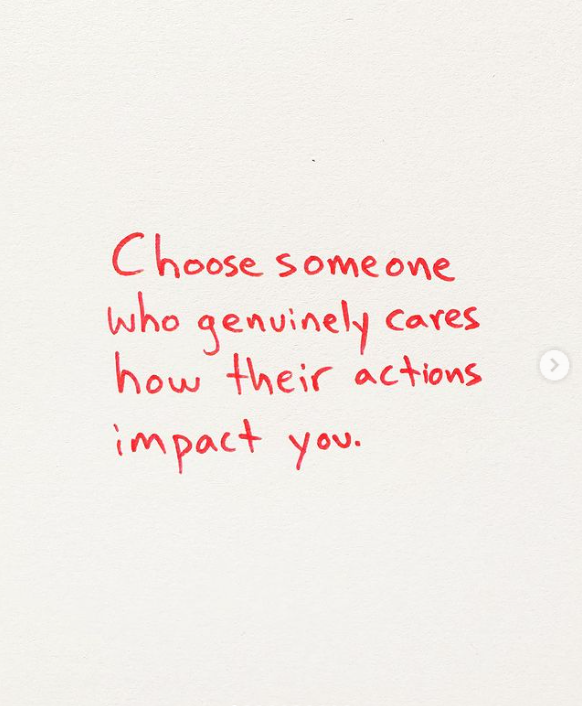 Choose someone
who genuinely cares
how their actions
impact you.